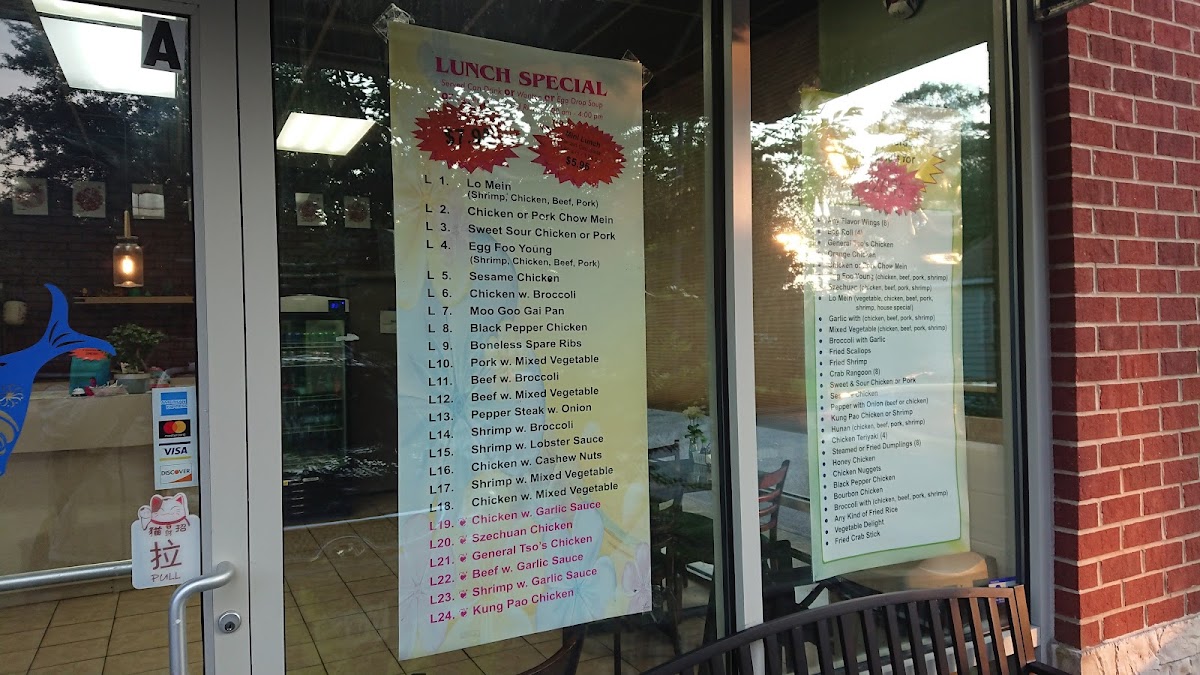 A
AMERICAN EXPRESS
MasterCard
VISA
DISCOVER
猫招
拉
PULL
LUNCH SPECIAL
Served Can Drink or or Egg Drop Soup
- 4:00 pm
Mini Lunch
$5.96
L 1. Lo Mein
(Shrimp, Chicken, Beef, Pork)
L 2. Chicken or Pork Chow Mein
L 3. Sweet Sour Chicken or Pork
L 4. Egg Foo Young
(Shrimp, Chicken, Beef, Pork)
L 5. Sesame Chicken
L 6. Chicken w. Broccoli
L 7. Moo Goo Gai Pan
L 8. Black Pepper Chicken
L 9. Boneless Spare Ribs
L10. Pork w. Mixed Vegetable
L11. Beef w. Broccoli
L12. Beef w. Mixed Vegetable
L13. Pepper Steak w. Onion
L14. Shrimp w. Broccoli
L15. Shrimp w. Lobster Sauce
L16. Chicken w. Cashew Nuts
L17. Shrimp w. Mixed Vegetable
L18. Chicken w. Mixed Vegetable
L19. Chicken w. Garlic Sauce
L20. Szechuan Chicken
L21. General Tso's Chicken
L22. Beef w. Garlic Sauce
L23. Shrimp w. Garlic Sauce
L24. Kung Pao Chicken
FOR
Flavor Wings (8)
Egg Roll (4)
General Tso's Chicken
Orange Chicken
Chicken or Pork Chow Mein
Egg Foo Young (chicken, beef, pork, shrimp)
Szechuan (chicken, beef, pork, shrimp)
Lo Mein (vegetable, chicken, beef, pork,
shrimp, house special)
Garlic with (chicken, beef, pork, shrimp)
Mixed Vegetable (chicken, beef, pork, shrimp)
Broccoli with Garlic
Fried Scallops
Fried Shrimp
Crab Rangoon (8)
Sweet & Sour Chicken or Pork
Sesame Chicken
Pepper with Onion (beef or chicken)
Kung Pao Chicken or Shrimp
Hunan (chicken, beef, pork, shrimp)
Chicken Teriyaki (4)
Steamed or Fried Dumplings (8)
Honey Chicken
Chicken Nuggets
Black Pepper Chicken
Bourbon Chicken
Broccoli with (chicken, beef, pork, shrimp)
Any Kind of Fried Rice
Vegetable Delight
Fried Crab Stick